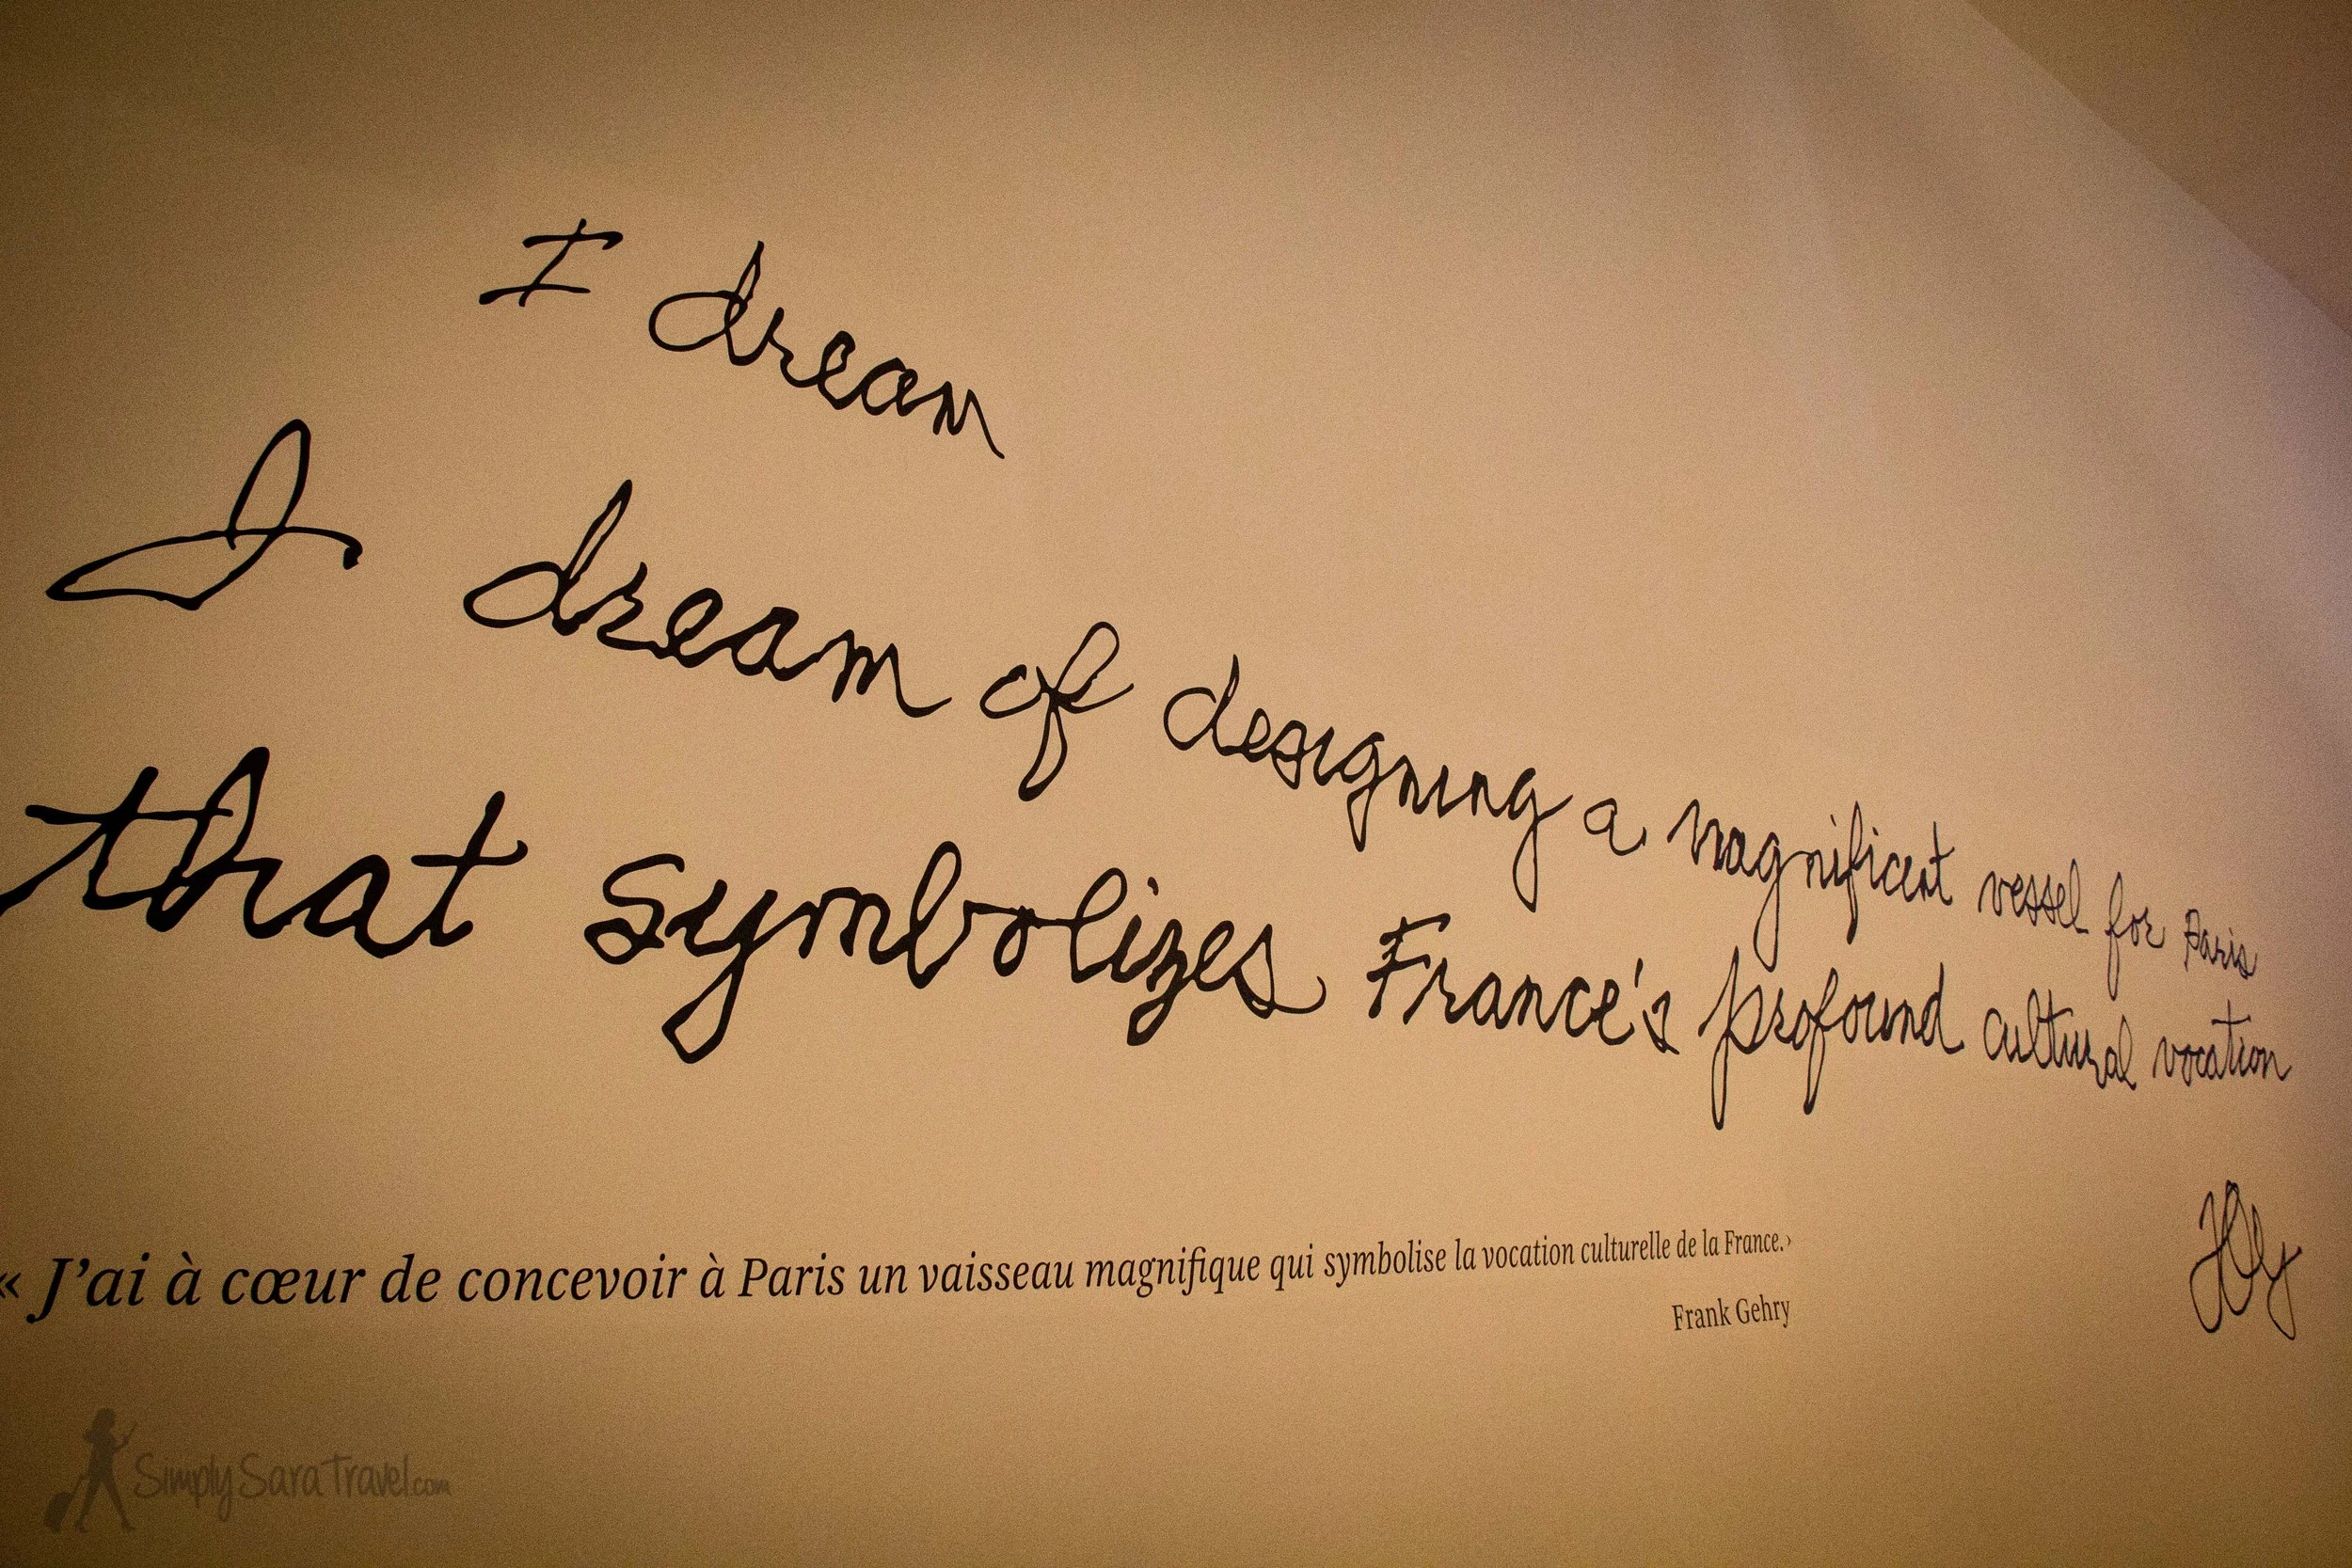 I dream
I dream of designing a magnificent vessel for Paris
that symbolizes France's profound cultural vocation
« J'ai à cœur de concevoir à Paris un vaisseau magnifique qui symbolise la vocation culturelle de la France.›
Frank Gehry
SimplySaraTravel.com